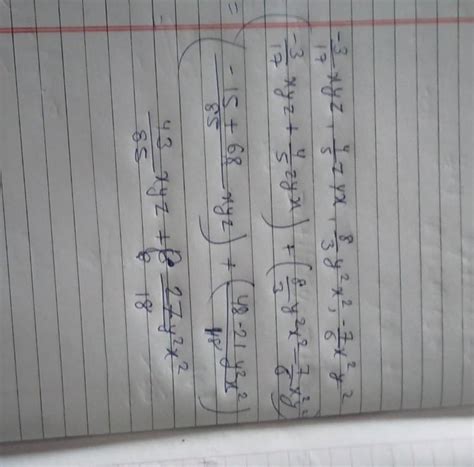 -3/17 xyz, 4/5 zyx, 8/3 y²x², -7/6 x²y²
(-3/17 xyz + 4/5 zyx) + (8/3 y²x² - 7/6 x²y²)
= (-15 + 68/85 xyz) + (48-21/18 y²x²)
43/85 xyz + 27/18 y²x²